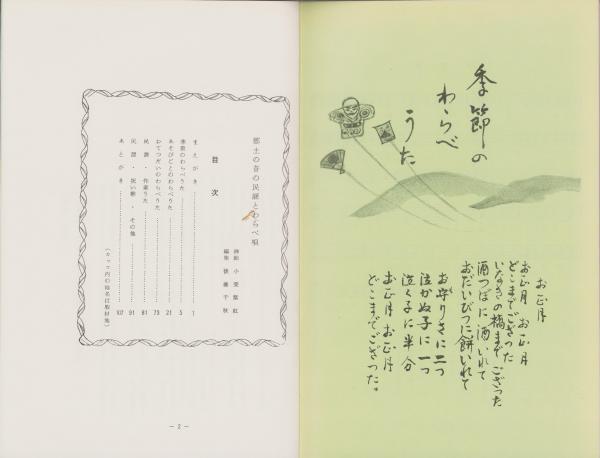 郷土の昔の民謡とわらべ唄
後藤千秋
目次
まえがき……1
季節のわらべうた……5
あそびごとのわらべうた……21
おてつだいのわらべうた……73
民謡・作業うた……81
民謡・祝い歌・その他……91
あとがき……107
(カッコ内の地名は取材地)
— 2 —
季節の
わらべ
うた
お正月
お正月 お正月
どこまでござった
いなきの橋までござった
酒つばに酒いれて
おだいびつに餅いれて
お守りさに二つ
泣かぬ子に一つ
泣く子に半分
お正月 お正月
どこまでござった。